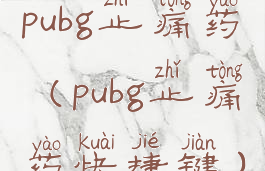 zhǐ tòng yào
pubg止痛药
zhǐ tòng
(pubg止痛
yào kuài jié jiàn
药快捷键)